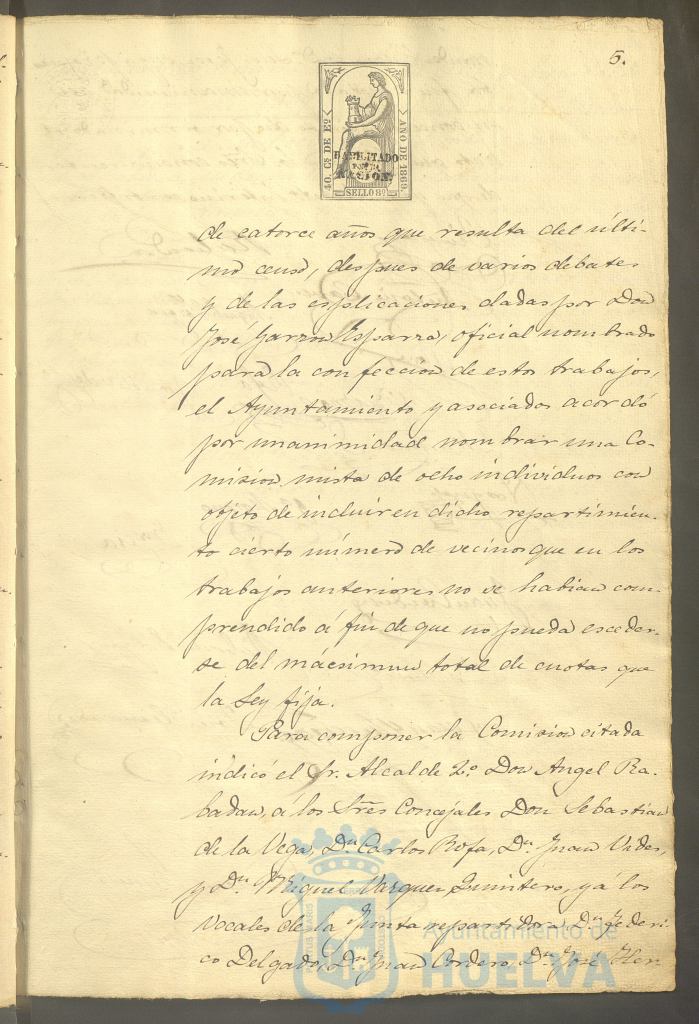 5.
40. Cs DE Eº
AÑO DE 1869.
HABILITADO
POR LA
NACION.
SELLO 8º
de catorce años que resulta del últi-
mo censo, despues de varios debates
y de las esplicaciones dadas por Don
José Garzon Esparza, oficial nombrado
para la confeccion de estos trabajos,
el Ayuntamiento y asociados acordó
por unanimidad nombrar una Co-
mision mista de ocho individuos con
objeto de incluir en dicho repartimien-
to cierto número de vecinos que en los
trabajos anteriores no se habian com-
prendido á fin de que no pueda esceder-
se del mácsimun total de cuotas que
la Ley fija.
Para componer la Comision citada
indicó el Sr. Alcalde 2º Don Angel Ra-
badan, á los Sres Concejales Don Sebastian
de la Vega, Dn Carlos Rofa, Dn Juan Vides,
y Dn Miguel Vazquez Quintero, y á los
Vocales de la Junta repartidora Dn Federi-
co Delgado, Dn Juan Cordero, Dn José Her
Ayuntamiento de
HUELVA